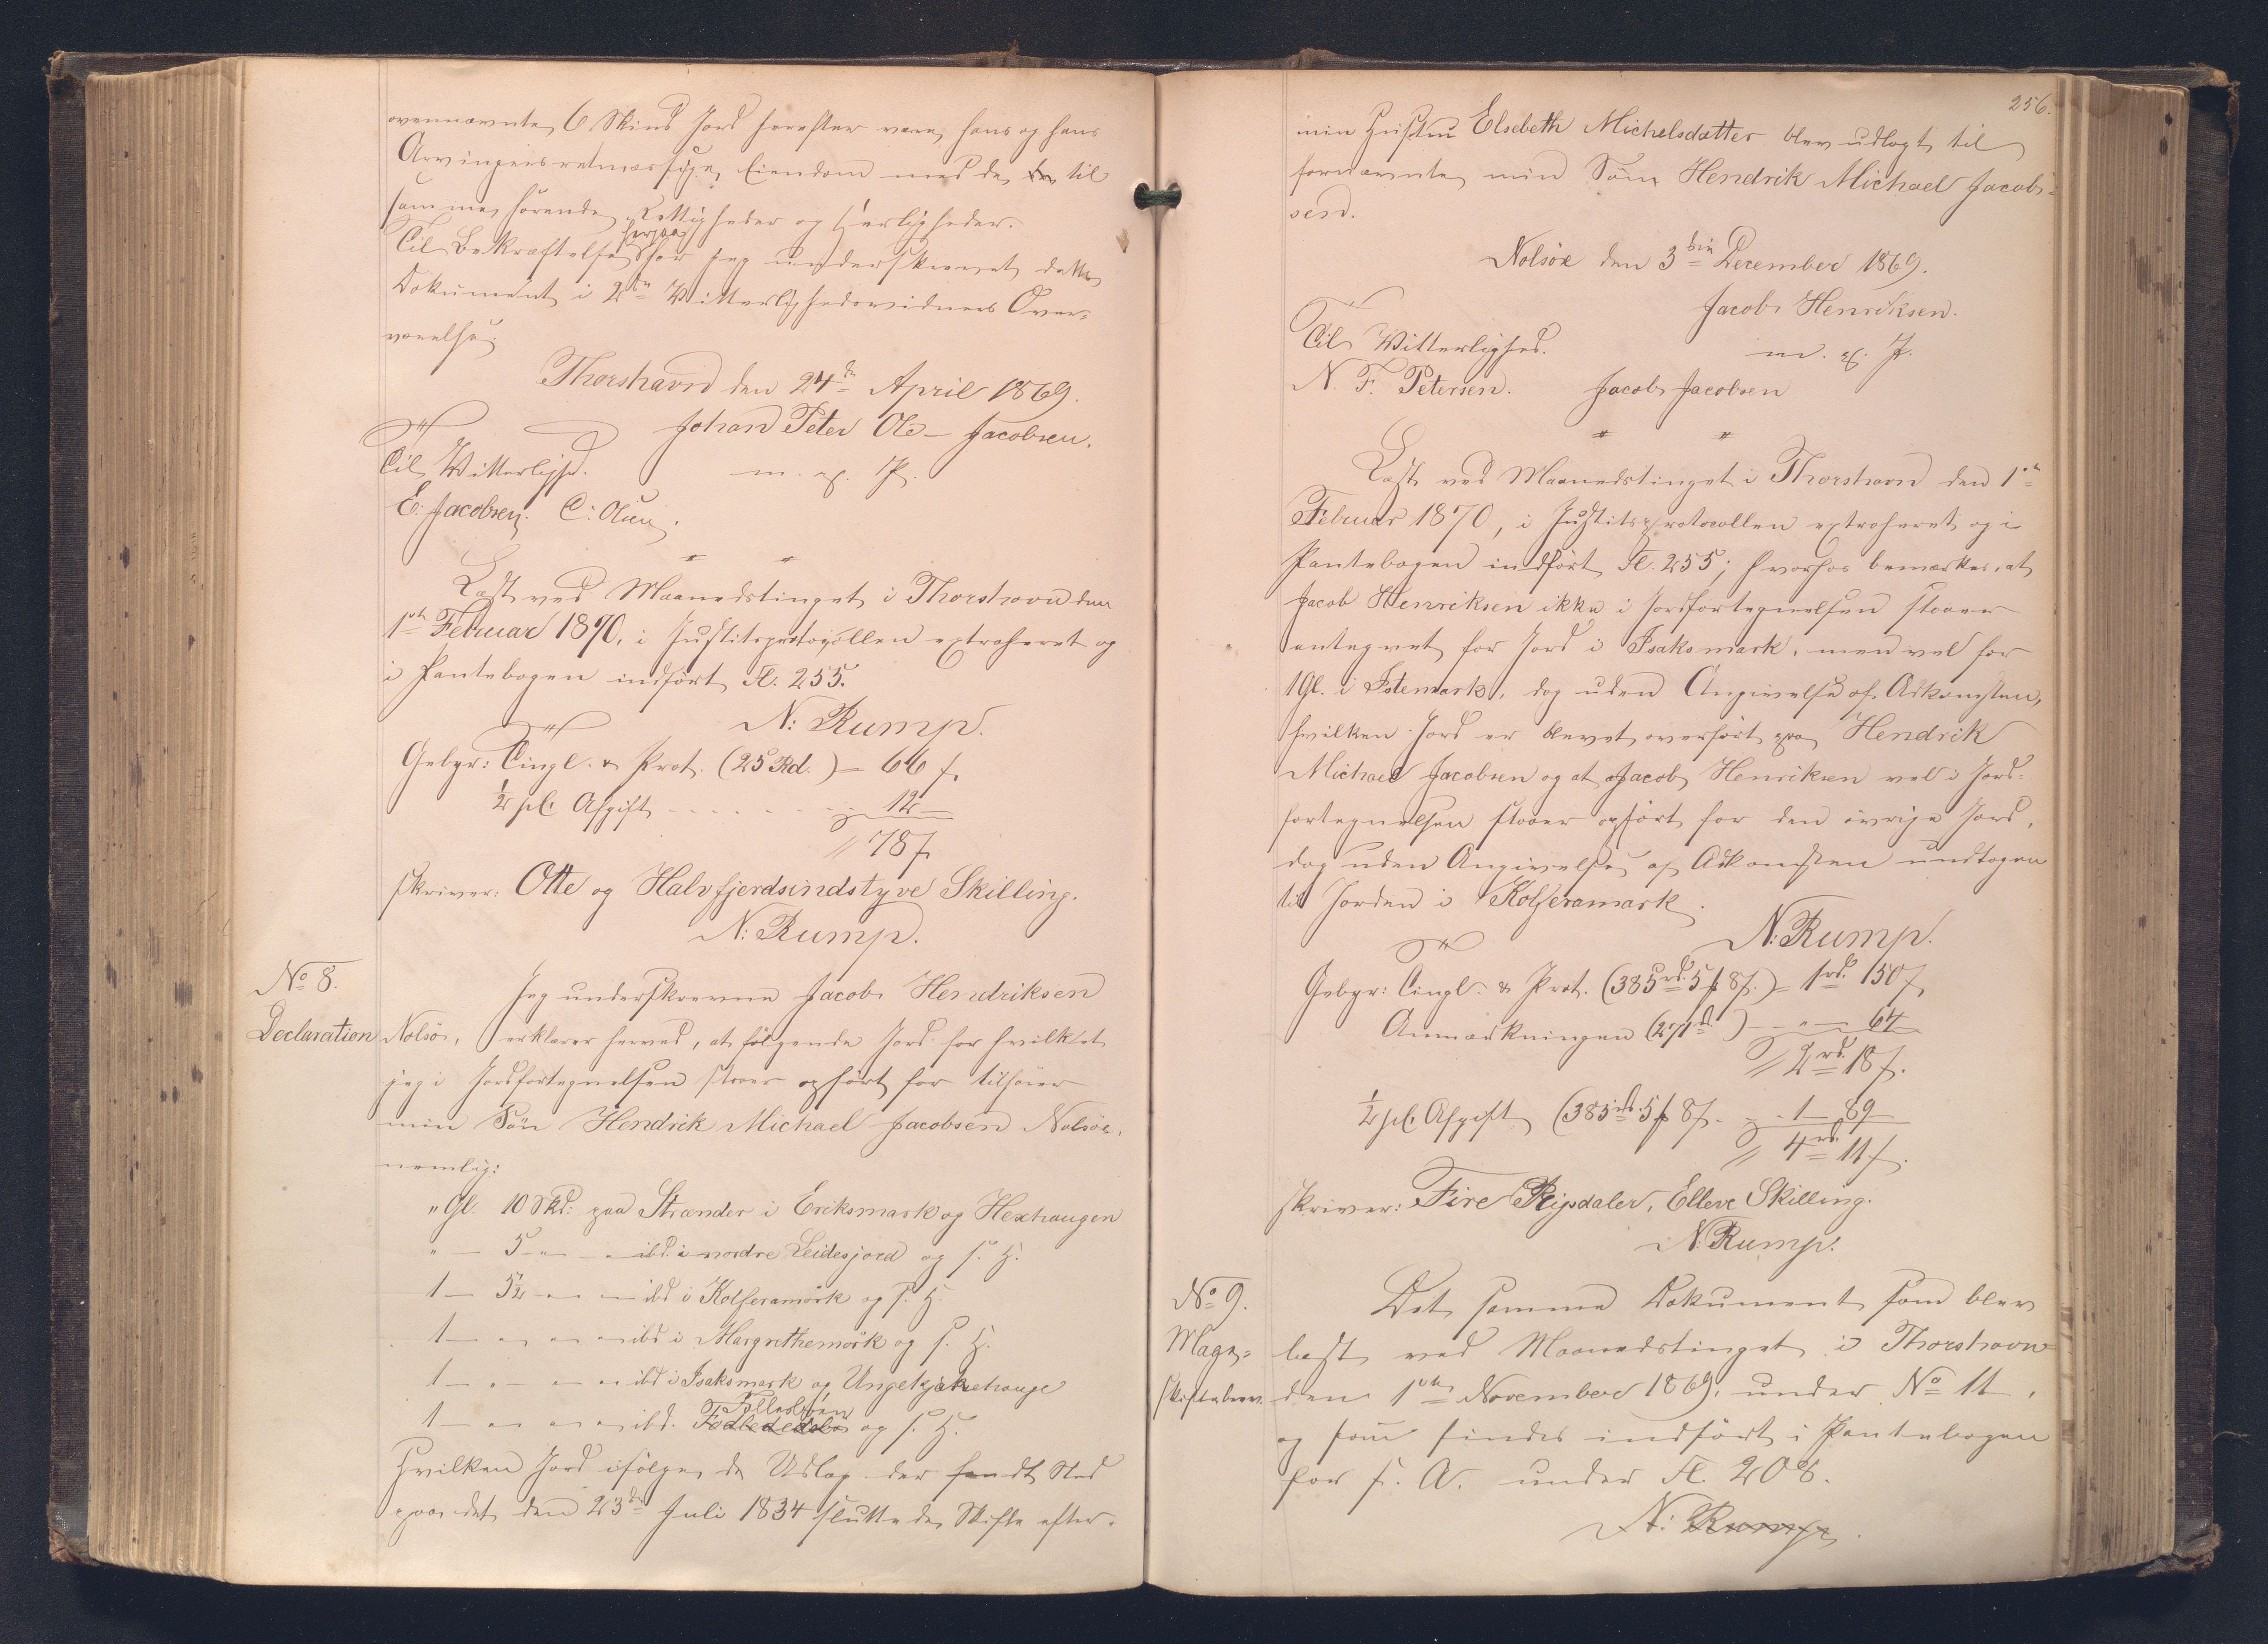 ovennævnte 6 Skind Jord herefter være hans og hans
Arvingers retmæssige Eiendom med de til
samme hørende Rettigheder og Herligheder.
Til Bekræftelse herpaa har jeg underskrevet dette
Dokument i 2de Vitterlighedsvidners Over-
værelse.
Thorshavn den 24de April 1869.
Johan Peter Ole Jacobsen.
Til Vitterlighed.
m. p. P.
E. Jacobsen. C: Olsen.
Læst ved Maanedstinget i Thorshavn den
1ste Februar 1870, i Justitsprotocollen extraheret og
i Pantebogen indført Fl. 255.
N: Rump.
Gebyr: Tingl. & Prot. (25 Rd.) = 66 ſ.
½ pCt Afgift - - - - 12 -
78 ſ
skriver: Otte og Halvfjerdsindstyve Skilling.
N: Rump.
No 8.
Declaration
Jeg underskrevne Jacob Hendriksen
Nolsø, erklærer herved, at følgende Jord for hvilket
jeg i Jordfortegnelsen staaer opført for tilhører
min Søn Hendrik Michael Jacobsen Nolsøe,
nemlig:
" Gl. 10 Skd: paa Strænder i Eriksmark og Hexhaugen
" - 5 - " - " ibd. i nordre Leidesjord og s. H.
1 - 5½ - " - " ibd i Kolferamørk og s. H.
1 - " - " - " ibd i Margrethemørk og s. H.
1 - " - " - " ibd i Isaksmark og Ungekjækehauge
1 - " - " - " ibd. Følledsbøen og s. H.
Hvilken Jord ifølge de Udlæg der fandt Sted
paa det den 23de Juli 1834 sluttede Skifte efter
256.
min Hustru Elsebeth Michelsdatter blev udlagt til
fornævnte min Søn Hendrik Michael Jacob-
sen.
Nolsöe den 3die December 1869.
Jacob Henriksen.
Til Vitterlighed.
m. p. P.
N. F. Petersen. Jacob Jacobsen
Læst ved Maanedstinget i Thorshavn den 1ste
Februar 1870, i Justitsprotocollen extraheret og i
Pantebogen indført Fl. 255; hvorhos bemærkes, at
Jacob Henriksen ikke i Jordfortegnelsen staaer
antegnet for Jord i Isaksmark, men vel for
1 Gl. i Istemark, dog uden Angivelse af Adkomsten,
hvilken Jord er blevet overført paa Hendrik
Michael Jacobsen og at Jacob Henriksen vel i Jord-
fortegnelsen staaer opført for den øvrige Jord,
dog uden Angivelse af Adkomsten undtagen
til Jorden i Kolferamark.
N: Rump.
Gebyr: Tingl. & Prot. (385 rd. 5 ₰ 8 ſ.) = 1 rd. 150 ſ
Anmærkningen (271 rd) - " - 64 -
2 rd. 18 ſ.
½ pCt. Afgift (385 rd. 5 ₰ 8 ſ. - 1 - 89 -
4 rd. 11 ſ.
skriver: Fire Rigsdaler, Elleve Skilling.
N. Rump.
No 9.
Mage-
skiftebrev.
Det samme Dokument som blev
læst ved Maanedstinget i Thorshavn
den 1ste November 1869, under No 11,
og som findes indført i Pantebogen
for s. A. under Fl. 208.
N: Rump.